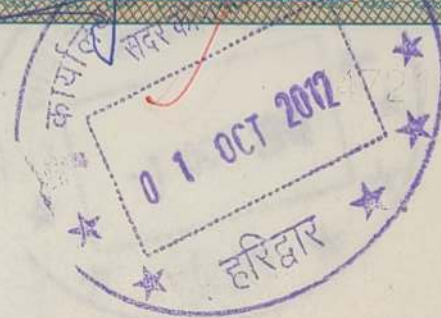 कार्याल
सदर को
01 OCT 2012
हरिद्वार